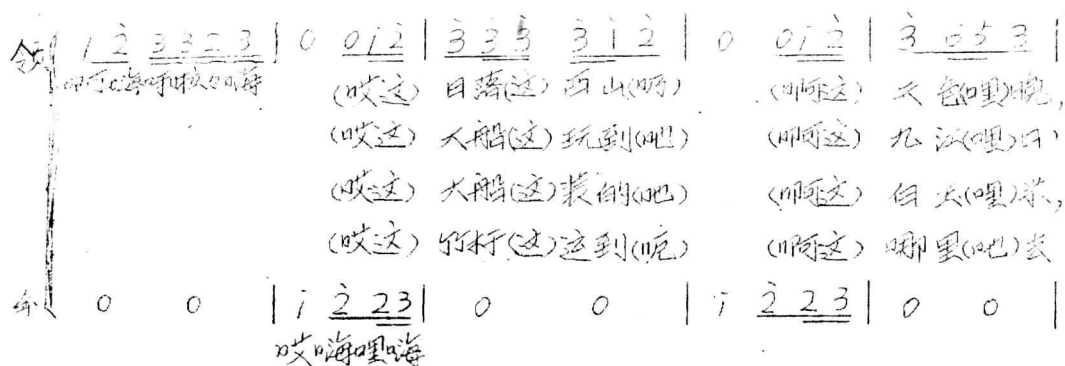 领 1 2̇ 3̇ 3̇ 2̇ 3̇ | 0 0 1̇ 2̇ | 3̇ 3̇ 3̇ 3̇ 1̇ 2̇ | 0 0 1̇ 2̇ | 3̇ 6 5 3 |
(哎这) 日落(这) 西山(哟) (啊这) 天色(哩)晚,
(哎这) 大船(这) 玩到(吧) (啊这) 九江(哩)
(哎这) 大船(这) 装的(吧) (啊这) 白天(哩)
(哎这) 竹杆(这) 运到(呃) (啊这) 哪里(吧)去
合 0 0 | i 2̇ 2̇ 3̇ | 0 0 | i 2̇ 2̇ 3̇ | 0 0 |
哎嗨哩嗨